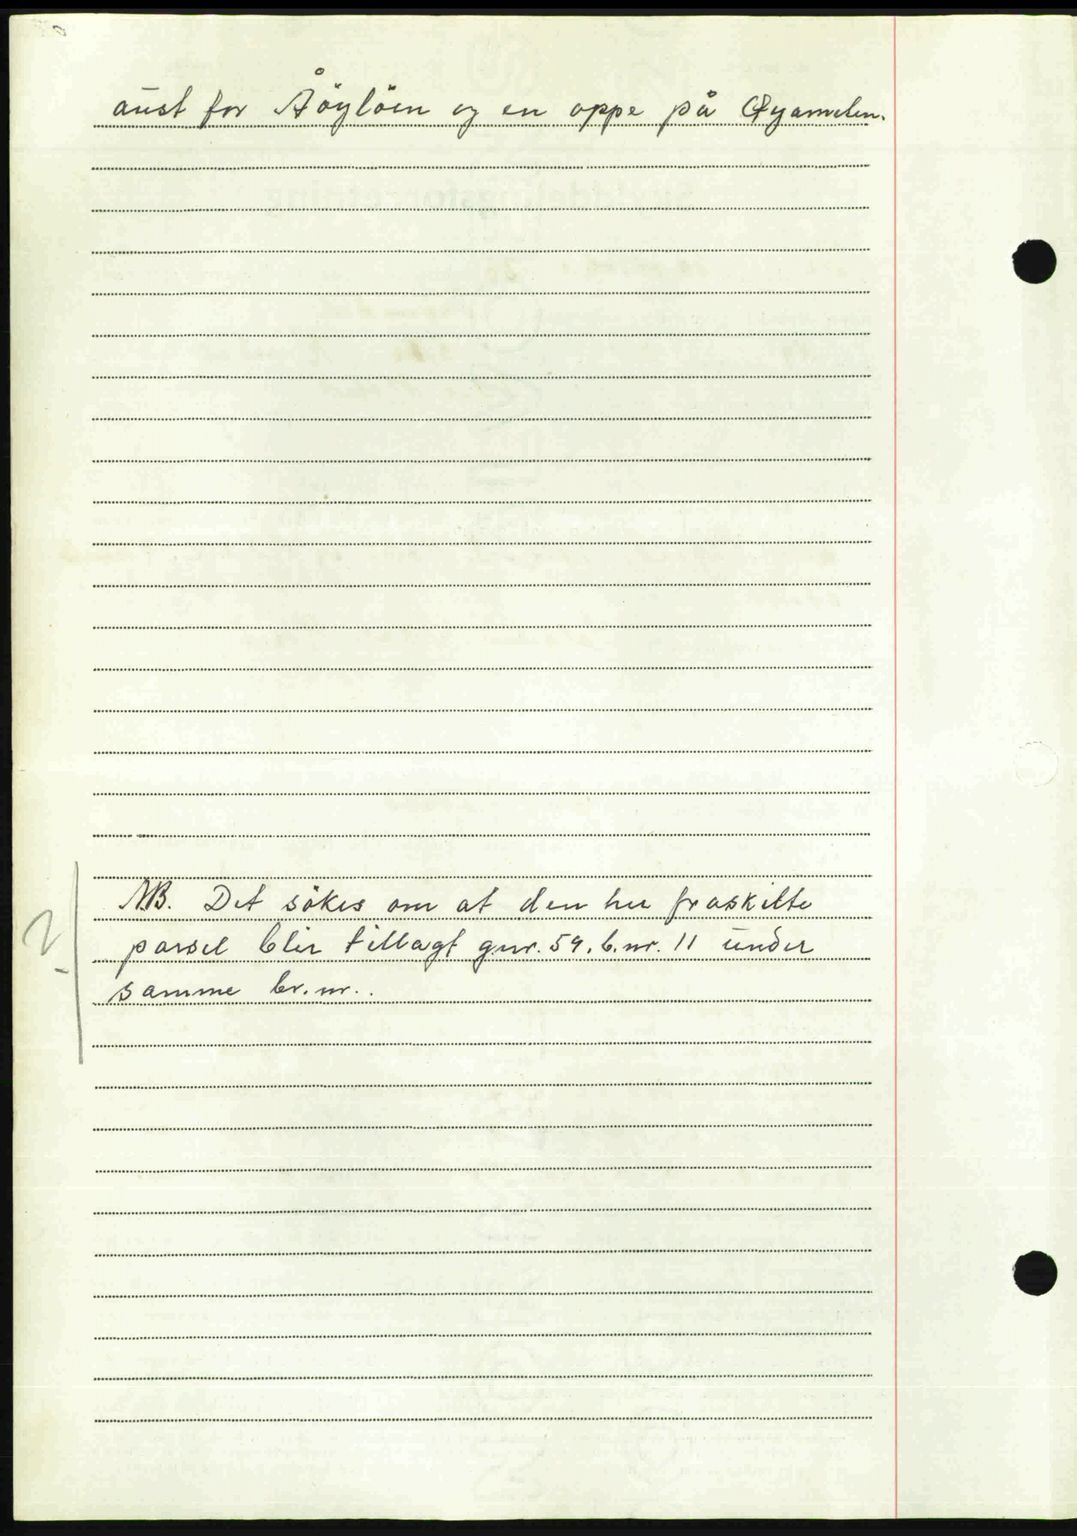 aust for Åöylöen og en oppe på Øyamelen.
NB. Det sökes om at den her fraskilte
parsel blir tillagt gnr. 59. b.nr. 11 under
samme br.nr..